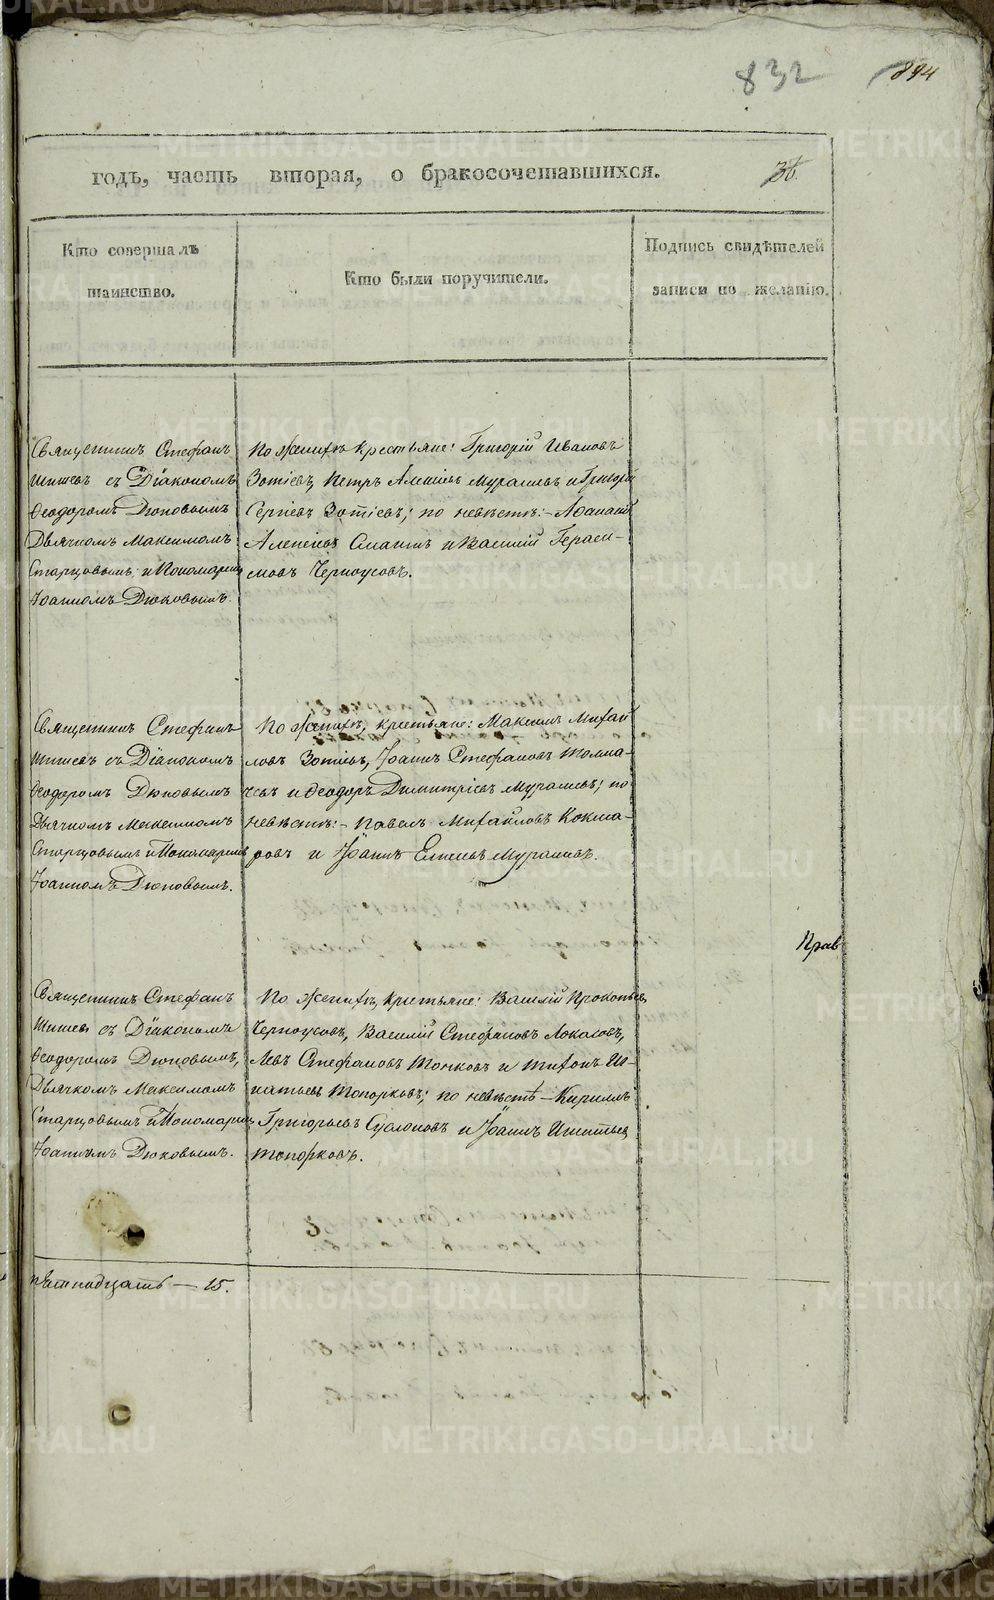 832
894
годъ, часть вторая, о бракосочетавшихся.
36.
Кто совершалъ
таинство.
Кто были поручители.
Подпись свидѣтелей
записи по желанію.
Священникъ Стефанъ
Шишевъ съ Діакономъ
Ѳеодоромъ Дюковымъ
Дьячкомъ Максимомъ
Старцовымъ, и Пономаремъ
Іоанномъ Дюковымъ.
По Женихѣ крестьяне: Григорій Ивановъ
Зотѣевъ, Петръ Алексѣевъ Мурашевъ и Григорій
Сергѣевъ Зотѣевъ; по невѣстѣ:
Алексѣевъ и Василій Гераси-
мовъ Черноусовъ.
Священникъ Стефанъ
Шишевъ съ Діакономъ
Ѳеодоромъ Дюковымъ
Дьячкомъ Максимомъ
Старцовымъ и Пономаремъ
Іоанномъ Дюковымъ.
По Женихѣ, крестьяне: Максимъ Михай
ловъ Зотѣевъ, Іоаннъ Стефановъ Толма-
чевъ и Ѳеодоръ Димитріевъ Мурашевъ; по
невѣстѣ:- Павелъ Михайловъ Кокша-
ровъ и Іоаннъ Мурашевъ.
Прав
Священникъ Стефанъ
Шишевъ съ Діакономъ
Ѳеодоромъ Дюковымъ,
Дьячкомъ Максимомъ
Старцовымъ и Пономаремъ
Іоанномъ Дюковымъ.
По Женихѣ, крестьяне: Василій Прокопьевъ
Черноусовъ, Василій Стефановъ Локаловъ,
Левъ Стефановъ Топковъ и Тихонъ Иг-
натьевъ Топорковъ; по невѣстѣ - Кириллъ
Григорьевъ Суслоновъ и Іоаннъ Игнатьевъ
Топорковъ.
пятнадцать - 15.
METRIKI.GASO-URAL.RU